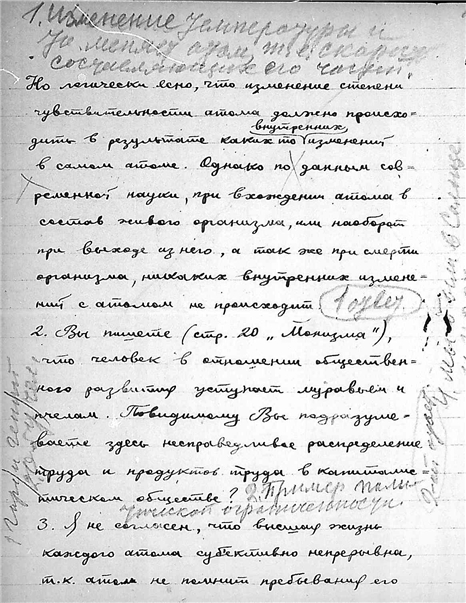 1. Изменение температуры и
не меняет атом, т.е. скорость
составляющих его частей.
Но логически ясно, что изменение степени
чувствительности атома должно происхо-
дить в результате каких то внутренних изменений
в самом атоме. Однако по данным сов-
ременной науки, при вхождении атома в
состав живого организма, или наоборот
при выходе из него, а так же при смерти
организма, никаких внутренних измене-
ний с атомом не происходит. 1 ответ
2. Вы пишете (стр. 20 „Монизма"),
что человек в отношении обществен-
ного развития уступает муравьям и
пчелам. Повидимому Вы подразуме-
ваете здесь несправедливое распределение
труда и продуктов труда в капиталис-
тическом обществе? 2. Пример поли-
тической ограниченности
3. Я не согласен, что высшая жизнь
каждого атома субъективно непрерывна,
т.к. атом не помнит пребывания его
в Солнце